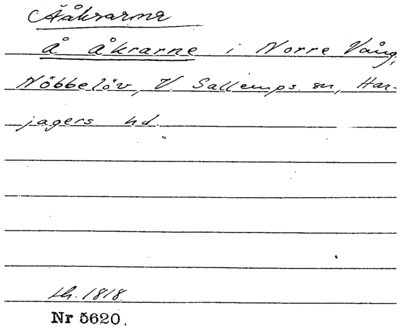 Ååkrarna
Å åkrarne i Norre Vång,
Nöbbelöv, V. Sallerups sn, Har-
jagers hd.
Lh. 1818
Nr 5620.